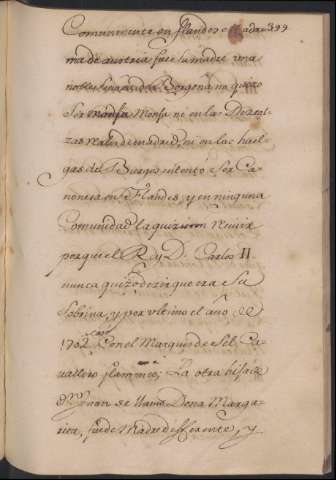 Comunmente en flandes Madre 399
ma de austria fue su madre una
noble Señora de Borgoña no quiso
ser Monja ni en las Descal-
zas reales de madrid, ni en las huel-
gas de Burgos intentó ser Ca-
nonesa en Flandes, y en ninguna
Comunidad la quizieron recivir
porque el Rey D. Carlos II
nunca quizo dezir que era su
sobrina, y por ultimo el año de
1702 casó Con el Marques de Ca-
vallero flammenco; La otra hija de
D. Juan se llamó Dona Marga-
rita, fue de Madre differente, y